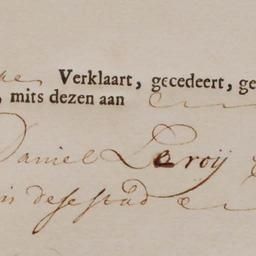 Verklaart, gecedeert, ge
, mits dezen aan
Daniel Leroij
in dese stad